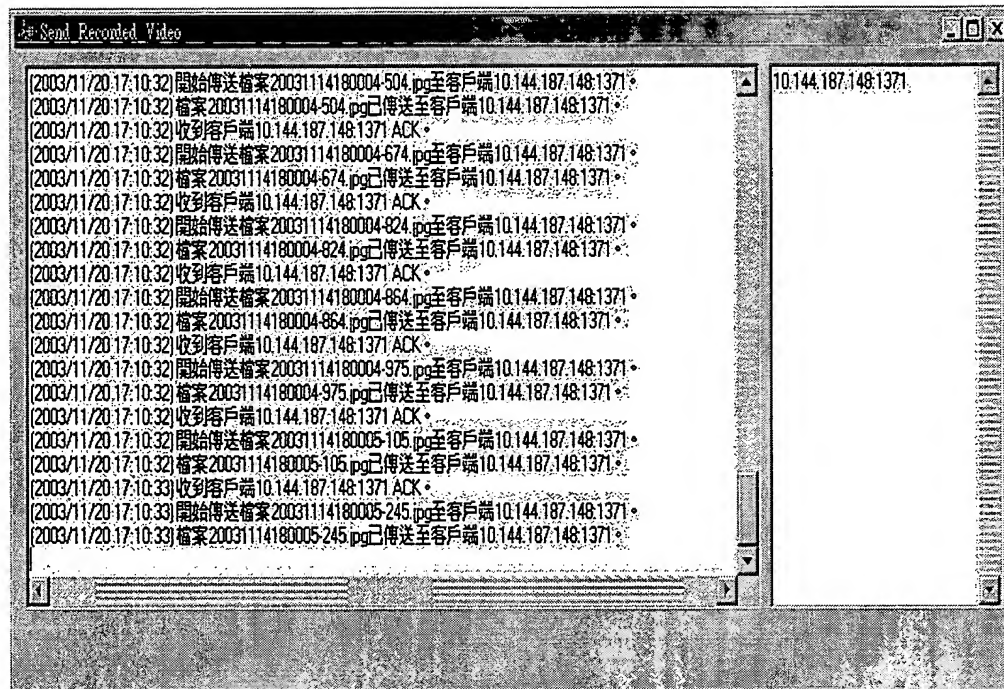 Send Recorded Video
[2003/11/20 17:10:32]開始傳送檔案20031114180004-504.jpg至客戶端10.144.187.148:1371。
[2003/11/20 17:10:32]檔案20031114180004-504.jpg已傳送至客戶端10.144.187.148:1371。
[2003/11/20 17:10:32]收到客戶端10.144.187.148:1371 ACK。
[2003/11/20 17:10:32]開始傳送檔案20031114180004-674.jpg至客戶端10.144.187.148:1371。
[2003/11/20 17:10:32]檔案20031114180004-674.jpg已傳送至客戶端10.144.187.148:1371。
[2003/11/20 17:10:32]收到客戶端10.144.187.148:1371 ACK。
[2003/11/20 17:10:32]開始傳送檔案20031114180004-824.jpg至客戶端10.144.187.148:1371。
[2003/11/20 17:10:32]檔案20031114180004-824.jpg已傳送至客戶端10.144.187.148:1371。
[2003/11/20 17:10:32]收到客戶端10.144.187.148:1371 ACK。
[2003/11/20 17:10:32]開始傳送檔案20031114180004-864.jpg至客戶端10.144.187.148:1371。
[2003/11/20 17:10:32]檔案20031114180004-864.jpg已傳送至客戶端10.144.187.148:1371。
[2003/11/20 17:10:32]收到客戶端10.144.187.148:1371 ACK。
[2003/11/20 17:10:32]開始傳送檔案20031114180004-975.jpg至客戶端10.144.187.148:1371。
[2003/11/20 17:10:32]檔案20031114180004-975.jpg已傳送至客戶端10.144.187.148:1371。
[2003/11/20 17:10:32]收到客戶端10.144.187.148:1371 ACK。
[2003/11/20 17:10:32]開始傳送檔案20031114180005-105.jpg至客戶端10.144.187.148:1371。
[2003/11/20 17:10:32]檔案20031114180005-105.jpg已傳送至客戶端10.144.187.148:1371。
[2003/11/20 17:10:33]收到客戶端10.144.187.148:1371 ACK。
[2003/11/20 17:10:33]開始傳送檔案20031114180005-245.jpg至客戶端10.144.187.148:1371。
[2003/11/20 17:10:33]檔案20031114180005-245.jpg已傳送至客戶端10.144.187.148:1371。
10.144.187.148:1371